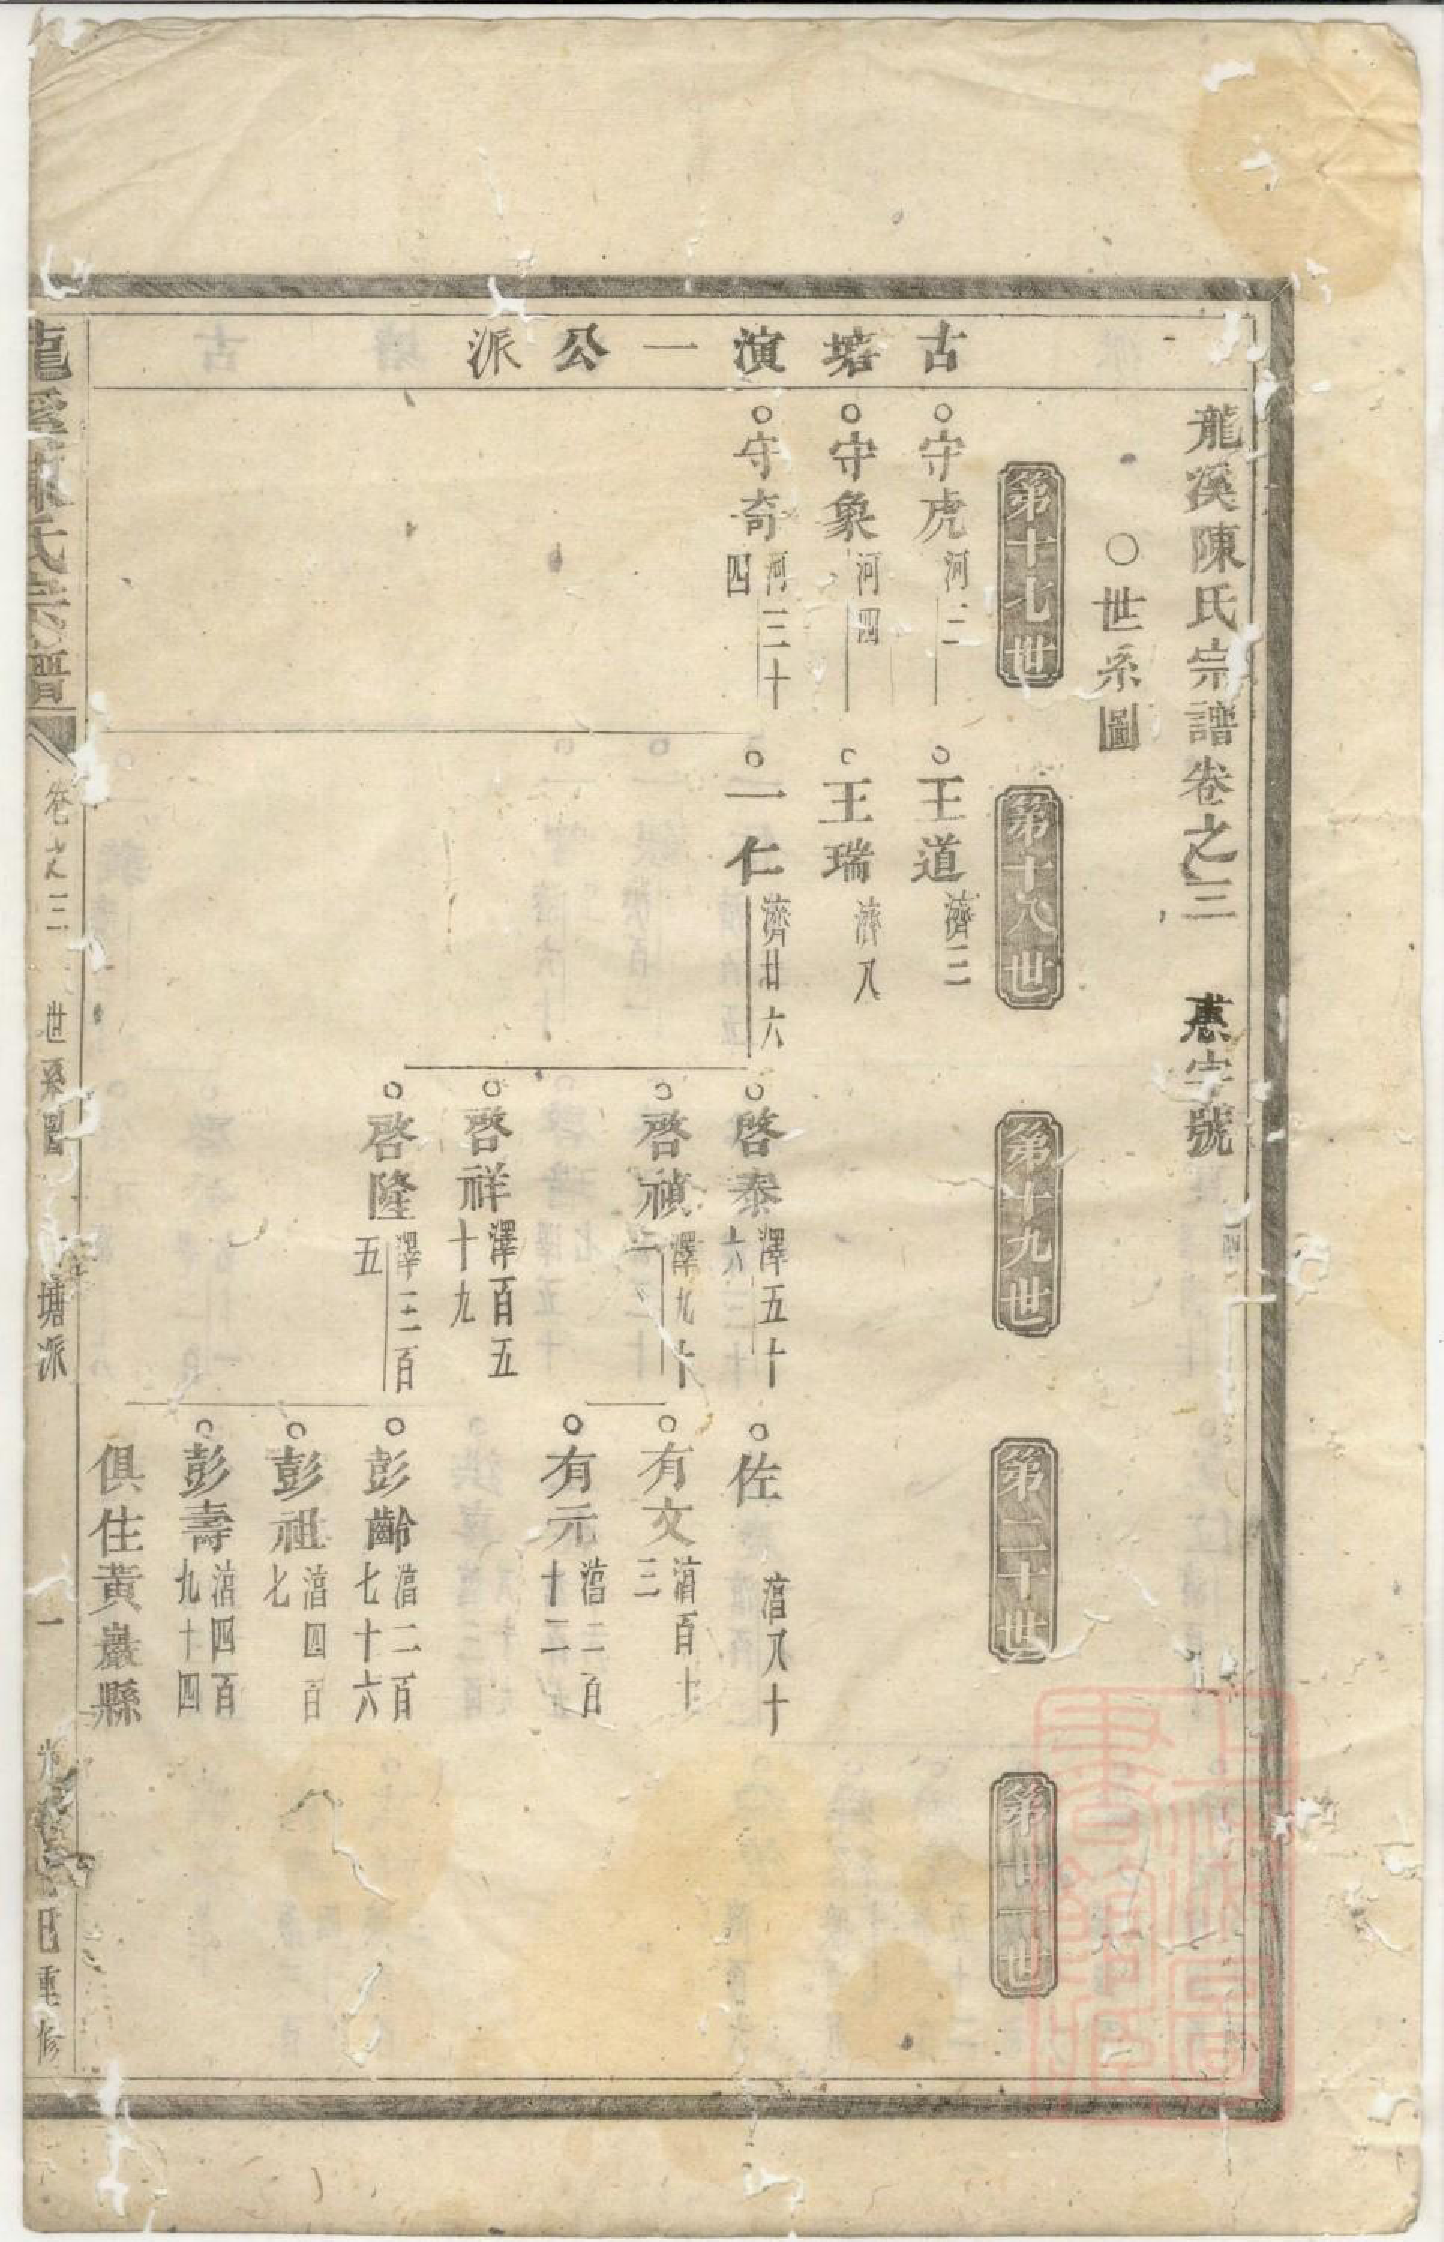 龍溪陳氏宗譜卷之三 惠字號
○世系圖
第十七世
第十八世
第十九世
第二十世
第廿一世
古塘演一公派
○守虎 河二
○守象 河四
○守奇 河三十四
○王道 濟三
○王瑞 濟八
○一仁 濟廿六
○啓泰 澤五十六
○啓禎 澤九十一
○啓祥 澤百五十九
○啓隆 澤三百五
○佐 湻八十
○有文 湻百十三
○有元 湻二百十二
○彭齡 湻二百七十六
○彭祖 湻四百七
○彭壽 湻四百九十四
俱住黃巖縣
龍溪陳氏宗譜 卷之三 世系圖 塘派 一 重修